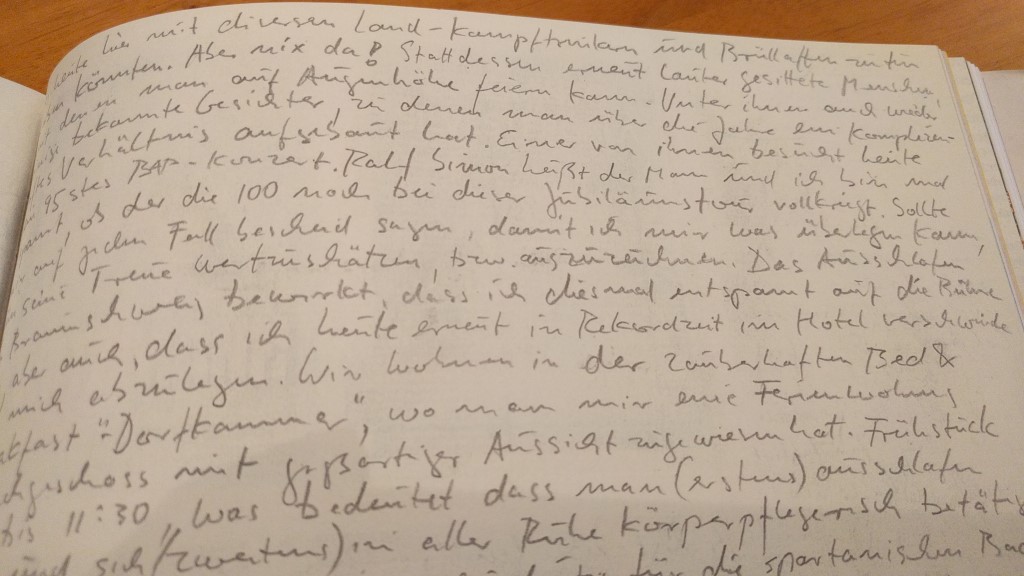 heute hier mit diversen Land-Kampftrinkern und Brüllaffen zu tun
könnten. Aber nix da! Stattdessen erneut lauter gesittete Menschen,
denen man auf Augenhöhe feiern kann. Unter ihnen auch wieder
bekannte Gesichter, zu denen man über die Jahre ein
Verhältnis aufgebaut hat. Einer von ihnen besucht heute
95stes BAP-Konzert. Ralf Simon heißt der Mann und ich bin mal
ob der die 100 noch bei dieser Jubiläumstour vollkriegt. Sollte
auf jeden Fall bescheid sagen, damit ich mir was überlegen kann,
seine Treue wertzuschätzen, bzw. auszuzeichnen. Das Ausschlafen
Braunschweig bewirkt, dass ich diesmal entspannt auf die Bühne
aber auch, dass ich heute erneut in Rekordzeit im Hotel verschwinde
mich abzulegen. Wir wohnen in der zauberhaften Bed &
"Dorfkammer", wo man mir eine Ferienwohnung
mit großartiger Aussicht zugewiesen hat. Frühstück
bis 11:30, was bedeutet dass man (erstens) ausschlafen
und sich (zweitens) in aller Ruhe körperpflegerisch
für die spartanischen